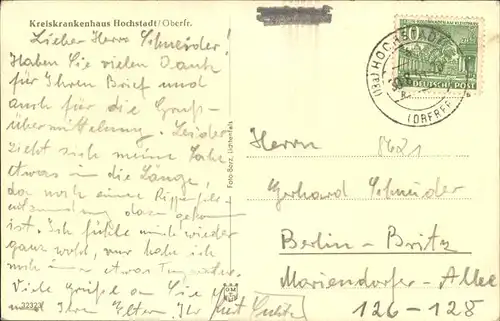 Kreiskrankenhaus Hochstadt/Oberfr.
Lieber Herr Schneider!
Haben Sie vielen Dank
für Ihren Brief und
auch für die Gruß-
übermittelung. Leider
zieht sich meine Sache
etwas in die Länge,
da noch eine Rippenfell-
entzündung dazu gekommen
ist. Ich fühle mich wieder
ganz wohl, nur habe ich
noch immer etwas Temperatur.
Viele Grüße an Sie
und Ihren Eltern. Ihr
32323
Foto-Borz, Lichtenfels
DEUTSCHE POST
(13a) HOCHSTADT
Herrn
8621
Gerhard Schneider
Berlin-Britz
Mariendorfer-Allee
126-128